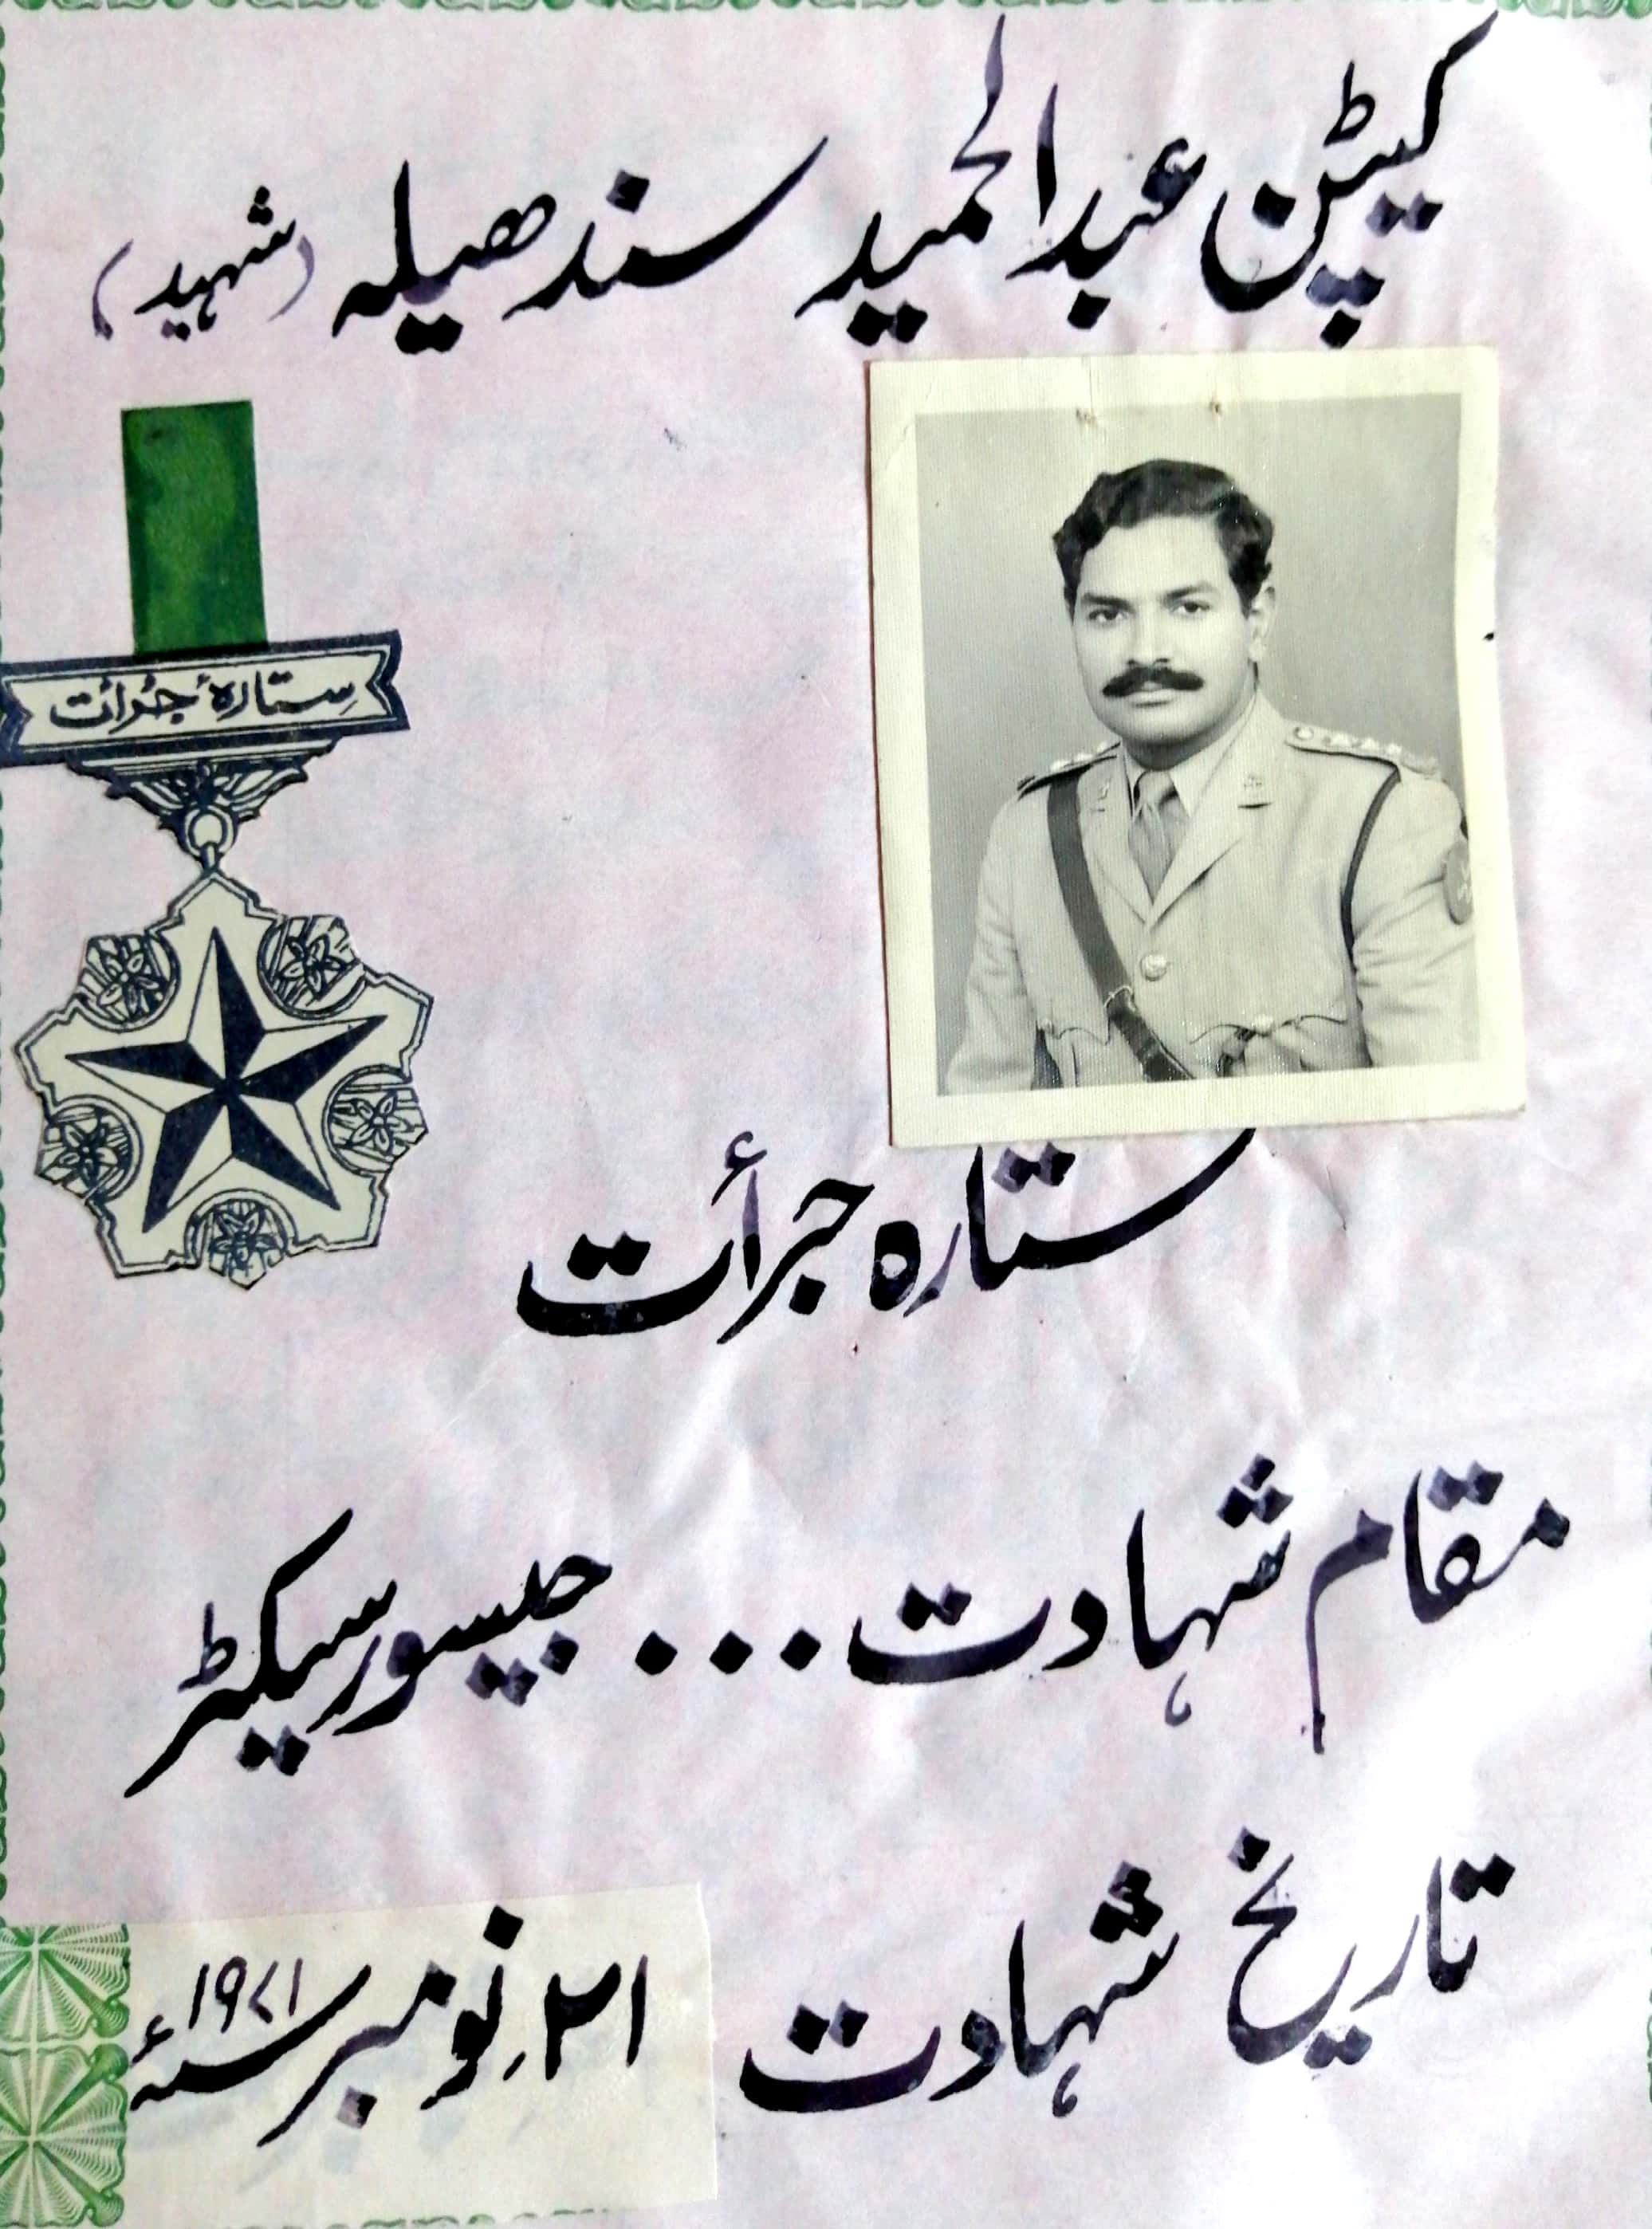 کیپٹن عبدالحمید سندھیلہ (شہید)
ستارۂ جرأت
ستارہ جرأت
مقام شہادت... جیسور سیکٹر
تاریخ شہادت ۲۱ نومبر ۱۹۷۱ء